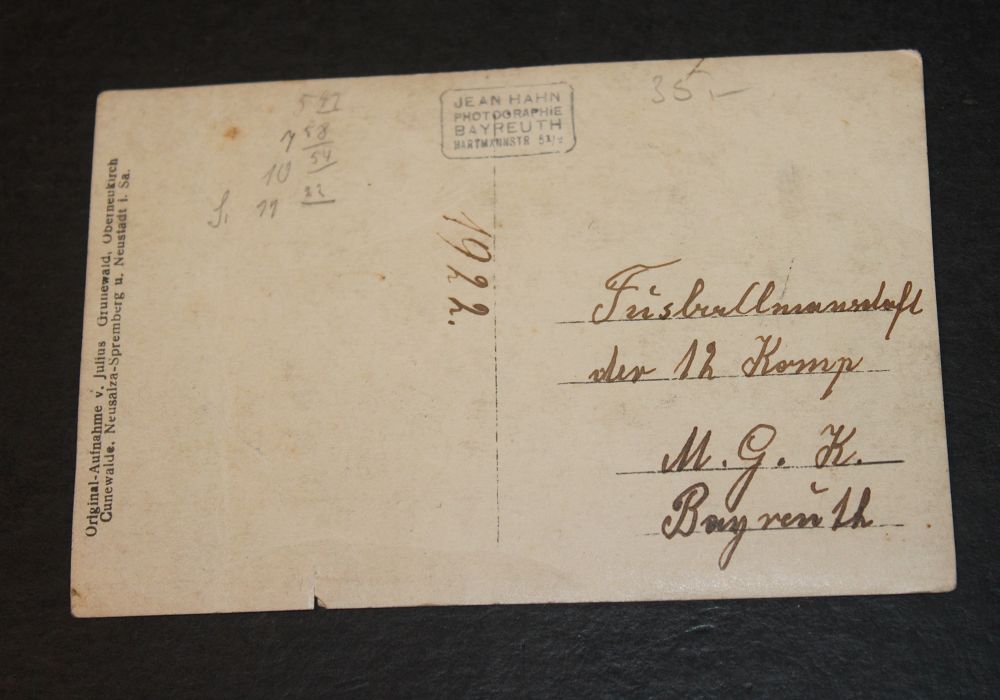 547
7 58
10 54
S. 11 22
JEAN HAHN
PHOTOGRAPHIE
BAYREUTH
HARTMANNSTR
35,—
Original-Aufnahme v. Julius Grunewald, Oberneukirch
Cunewalde, Neusalza-Spremberg u. Neustadt i. Sa.
1922.
Fusballmannschaft
der 12 Komp
M. G. K.
Bayreuth